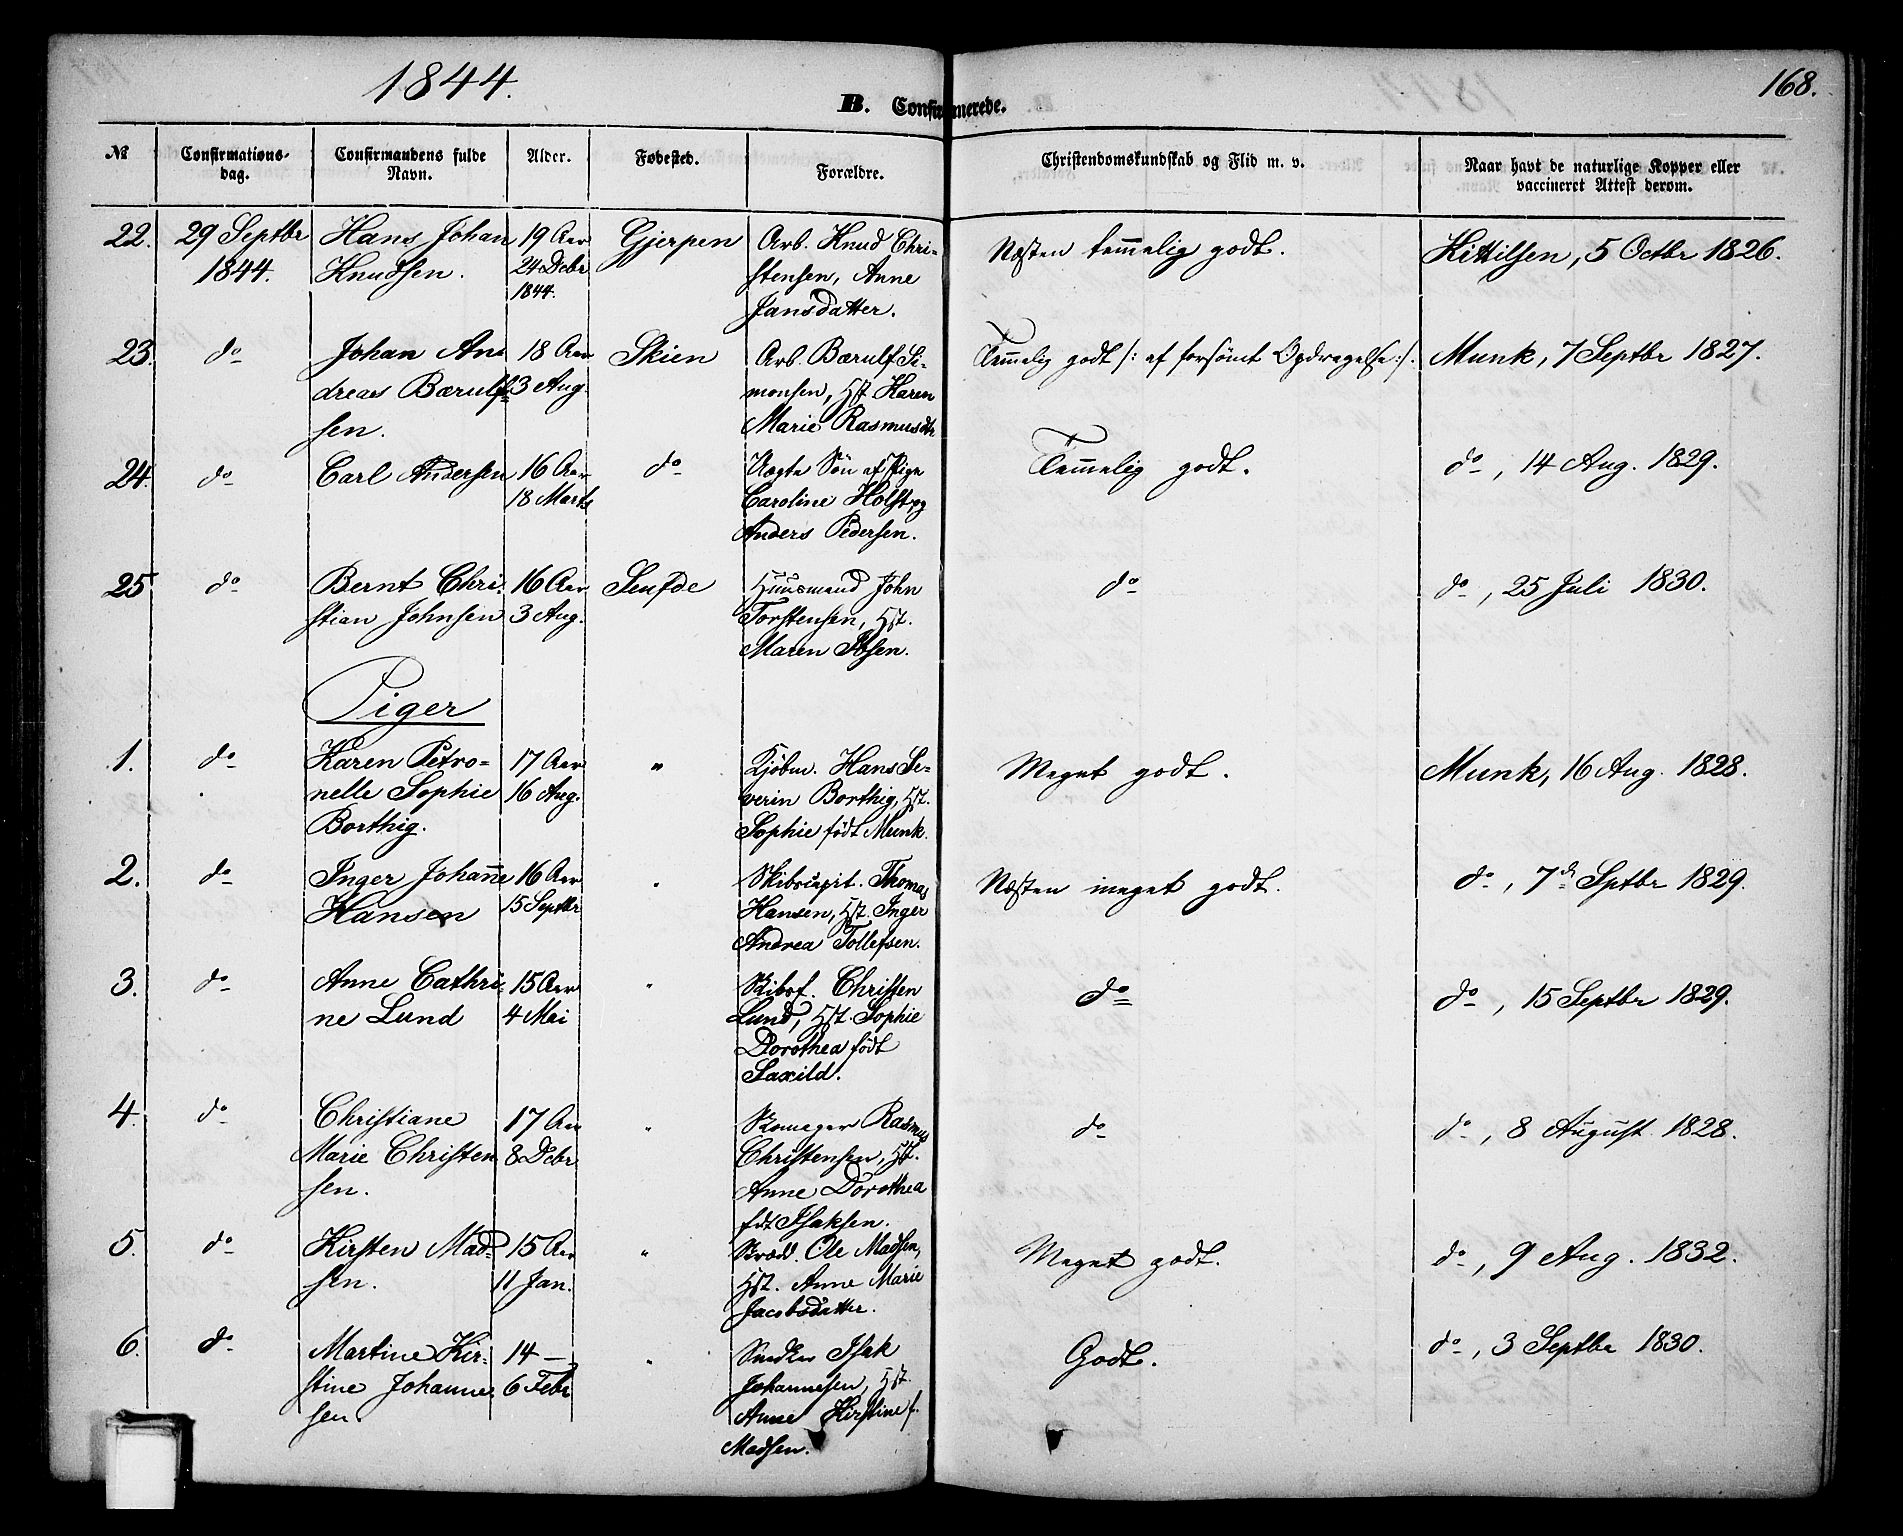 1844.
B. Confirmerede.
168.
№
Confirmations-
dag.
Confirmandens fulde
Navn.
Alder.
Fødested.
Forældre.
Christendomskundskab og Flid m. v.
Naar havt de naturlige Kopper eller
vaccineret Attest derom.
22. 29 Septbr Hans Johan 19 Aar Gjerpen Arb. Knud Chri- Næsten temmelig godt. Kittilsen, 5 Octbr 1826.
1844. Knudsen. 24 Decbr stensen, Anne
1844. Jansdatter.
23. do Johan An- 18 Aar Skien Arb. Bærulf Si- Temmelig godt /: af forsømt Opdragelse :/. Munk, 7 Septbr 1827.
dreas Bærulf- 3 Aug. monsen, Hst. Karen
sen. Marie Rasmusdtr
24. do Carl Andersen 16 Aar do Uægte Søn af Pige Temmelig godt. do, 14 Aug. 1829.
18 Marts Caroline Holst og
Anders Pedersen.
25 do Bernt Chri- 16 Aar Huusmand John do do, 25 Juli 1830.
stian Johnsen 3 Aug. Torstensen, Hst.
Maren Ibsen.
Piger
1. do Karen Petro- 17 Aar " Kjøbm. Hans Se- Meget godt. Munk, 16 Aug. 1828.
nelle Sophie 16 Aug. verin Borthig, Hst.
Borthig. Sophie født Munk.
2. do Inger Johanne 16 Aar " Thomas Næsten meget godt. do, 7de Sptbr 1829.
Hansen 15 Septbr Hansen, Hst. Inger
Andrea Tollefsen.
3. do Anne Cathri- 15 Aar " Skibsf. Christen do do, 15 Septbr 1829.
ne Lund 4 Mai Lund, Hst. Sophie
Dorothea født
Saxild.
4. do Christiane 17 Aar " Skomager Rasmus do do, 8 August 1828.
Marie Christen- 8 Decbr Christensen, Hst.
sen. Anne Dorothea
fdt Isaksen.
5. do Kirsten Mad- 15 Aar " Skrædd. Ole Madsen, Meget godt. do, 9 Aug. 1832.
sen. 11 Jan. Hst. Anne Marie
Jacobsdatter.
6. do Martine Kir- 14 — " Snedker Isak Godt. do, 3 Septbr 1830.
stine Johanne- 6 Febr Johannesen, Hst.
sen. Anne Kirstine f.
Madsen.